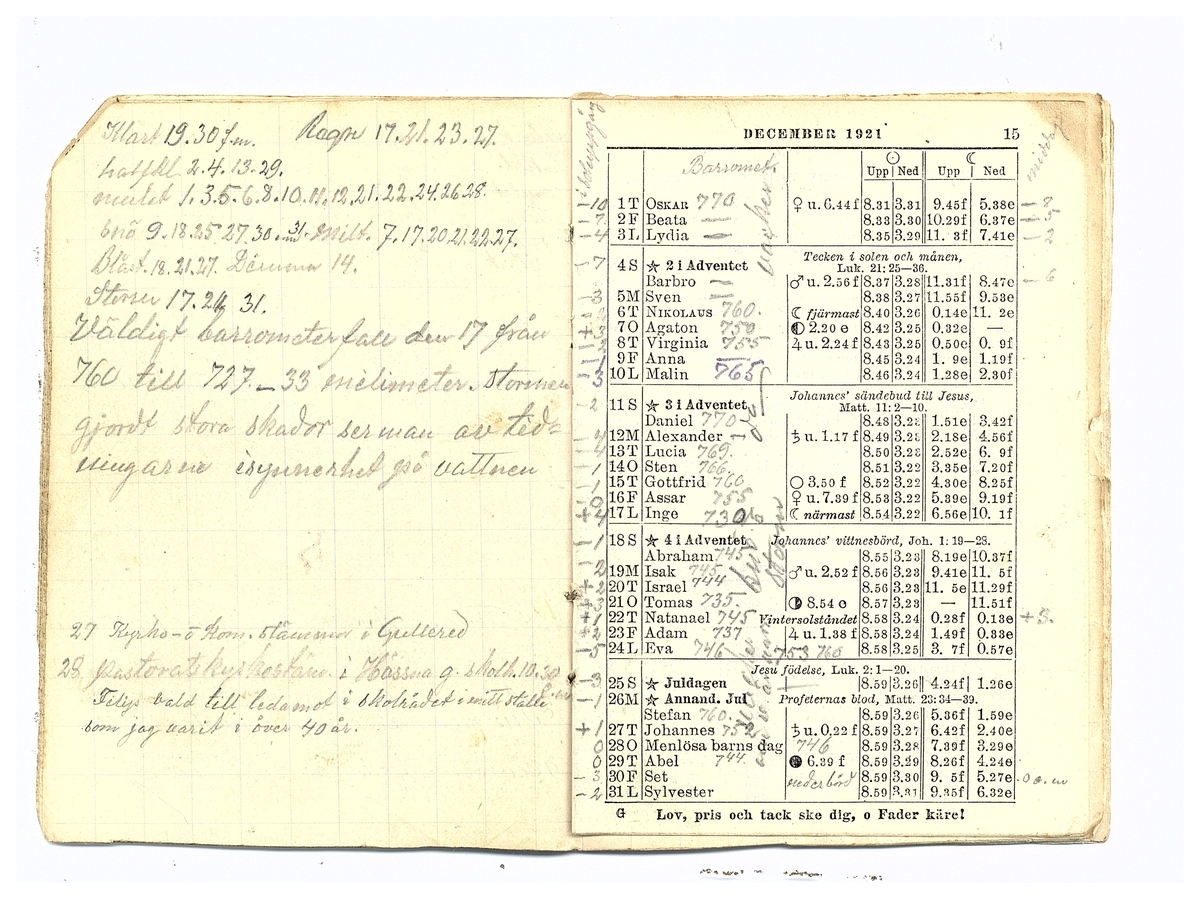 Klart 19.30 f.m. Regn 17.21.23.27.
halfkl. 2.4.13.29.
mulet 1.3.5.6.8.10.11.12.21.22.24.26.28.
Snö 9.18.25 27.30 31. Milt. 7.17.20.21.22.27.
Blåst. 18.21.27. Dimma 14.
Storm 17.24 31.
Väldigt barrometerfall den 17 från
760 till 727 – 33 milimeter. Stormen
gjordt stora skador ser man av tid=
ningarne isynnerhet på vattnen
27 Kyrko- o kom. stämmor i Gullered
28 Pastoratskyrkostäm. i Hössna g. skolh. 10.30
Filip vald till ledamot i skolrådet i mitt ställe
som jag varit i över 40 år.
DECEMBER 1921 15
Barromet.
☉ ☾
Upp Ned Upp Ned
1 T OSKAR 770 ♀ u. 6.44 f 8.31 3.31 9.45f 5.38e
2 F Beata — 8.33 3.30 10.29f 6.37e
3 L Lydia — 8.35 3.29 11. 3f 7.41e
4 S ★ 2 i Adventet Tecken i solen och månen,
Luk. 21: 25—36.
Barbro — ♂ u. 2.56 f 8.37 3.28 11.31f 8.47e
5 M Sven — 8.38 3.27 11.55f 9.53e
6 T NIKOLAUS 760. ☾ fjärmast 8.40 3.26 0.14e 11. 2e
7 O Agaton 750 ◐ 2.20 e 8.42 3.25 0.32e —
8 T Virginia 755 ♃ u. 2.24 f 8.43 3.25 0.50e 0. 9f
9 F Anna — 8.45 3.24 1. 9e 1.19f
10 L Malin 765 8.46 3.24 1.28e 2.30f
11 S ★ 3 i Adventet Johannes' sändebud till Jesus,
Matt. 11: 2—10.
Daniel 770 8.48 3.23 1.51e 3.42f
12 M Alexander ♄ u. 1.17 f 8.49 3.23 2.18e 4.56f
13 T Lucia 769. 8.50 3.23 2.52e 6. 9f
14 O Sten 766. 8.51 3.22 3.35e 7.20f
15 T Gottfrid 760 ○ 3.50 f 8.52 3.22 4.30e 8.25f
16 F Assar 755 ♀ u. 7.39 f 8.53 3.22 5.39e 9.19f
17 L Inge 730 ☾ närmast 8.54 3.22 6.56e 10. 1f
18 S ★ 4 i Adventet Johannes' vittnesbörd, Joh. 1: 19—28.
Abraham 745 8.55 3.23 8.19e 10.37f
19 M Isak 745 ♂ u. 2.52 f 8.56 3.23 9.41e 11. 5f
20 T Israel 744 8.56 3.23 11. 5e 11.29f
21 O Tomas 735. ◑ 8.54 e 8.57 3.23 — 11.51f
22 T Natanael 745 Vintersolståndet 8.58 3.24 0.28f 0.13e
23 F Adam 737 ♃ u. 1.38 f 8.58 3.24 1.49f 0.33e
24 L Eva 746 753 760 8.58 3.25 3. 7f 0.57e
Jesu födelse, Luk. 2: 1—20.
25 S ★ Juldagen 8.59 3.26 4.24f 1.26e
26 M ★ Annand. Jul Profeternas blod, Matt. 23: 34—39.
Stefan 760. 8.59 3.26 5.36f 1.59e
27 T Johannes 752 ♄ u. 0.22 f 8.59 3.27 6.42f 2.40e
28 O Menlösa barns dag 746 8.59 3.28 7.39f 3.29e
29 T Abel 744. ● 6.39 f 8.59 3.29 8.26f 4.24e
30 F Set nederbörd 8.59 3.30 9. 5f 5.27e
31 L Sylvester 8.59 3.31 9.35f 6.32e
G Lov, pris och tack ske dig, o Fader käre!